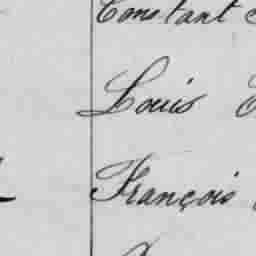 Constant
Louis
François